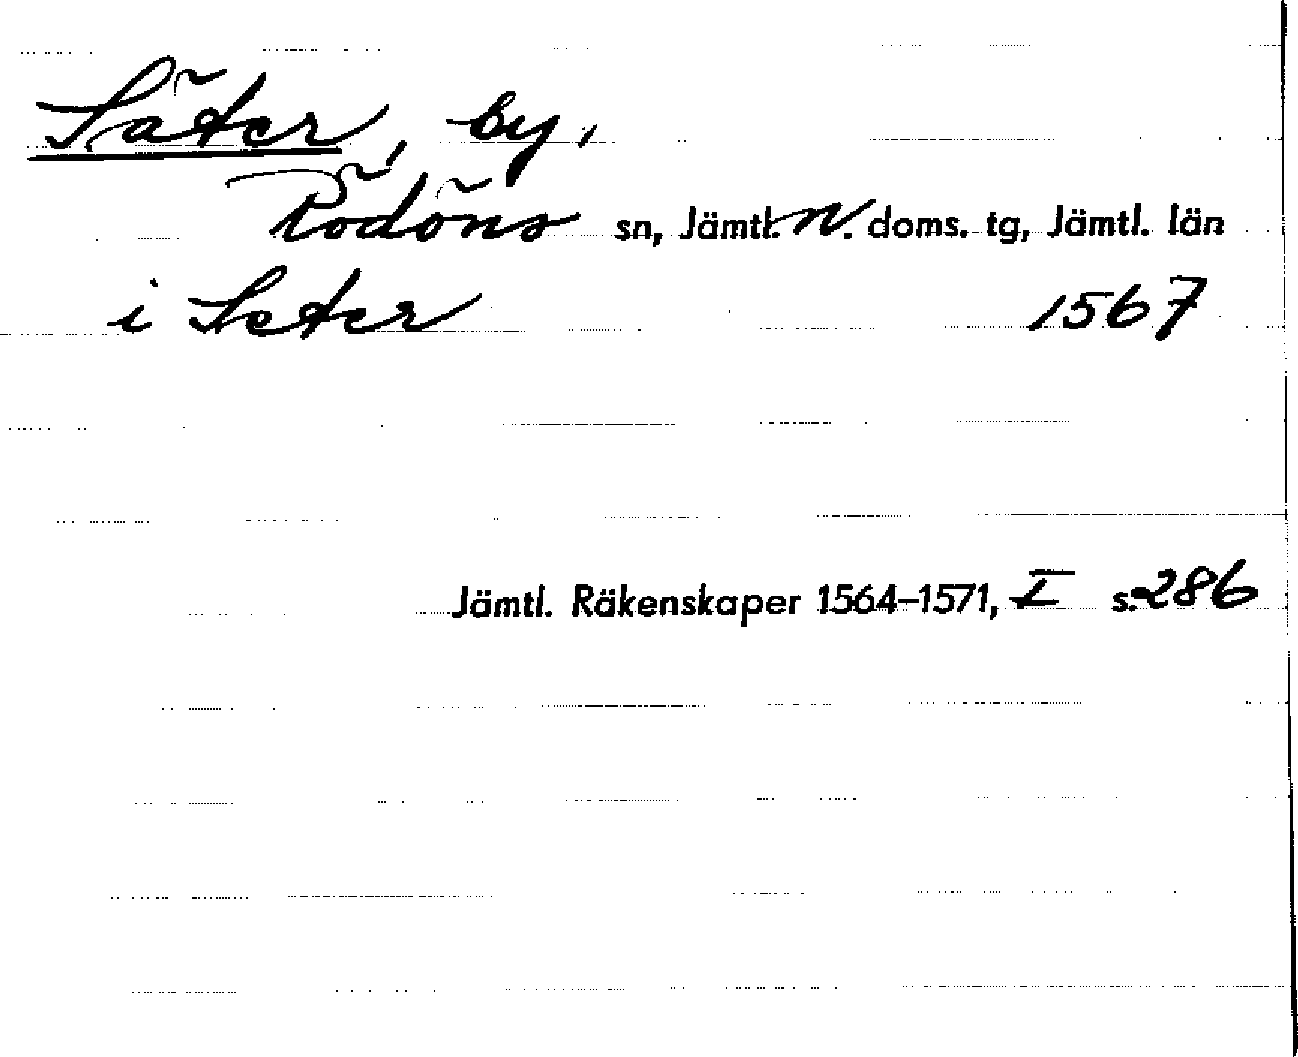 Säter, by,
Rödöns sn, Jämtl. N. doms. tg, Jämtl. län
i Seter 1567
Jämtl. Räkenskaper 1564-1571, I s. 286